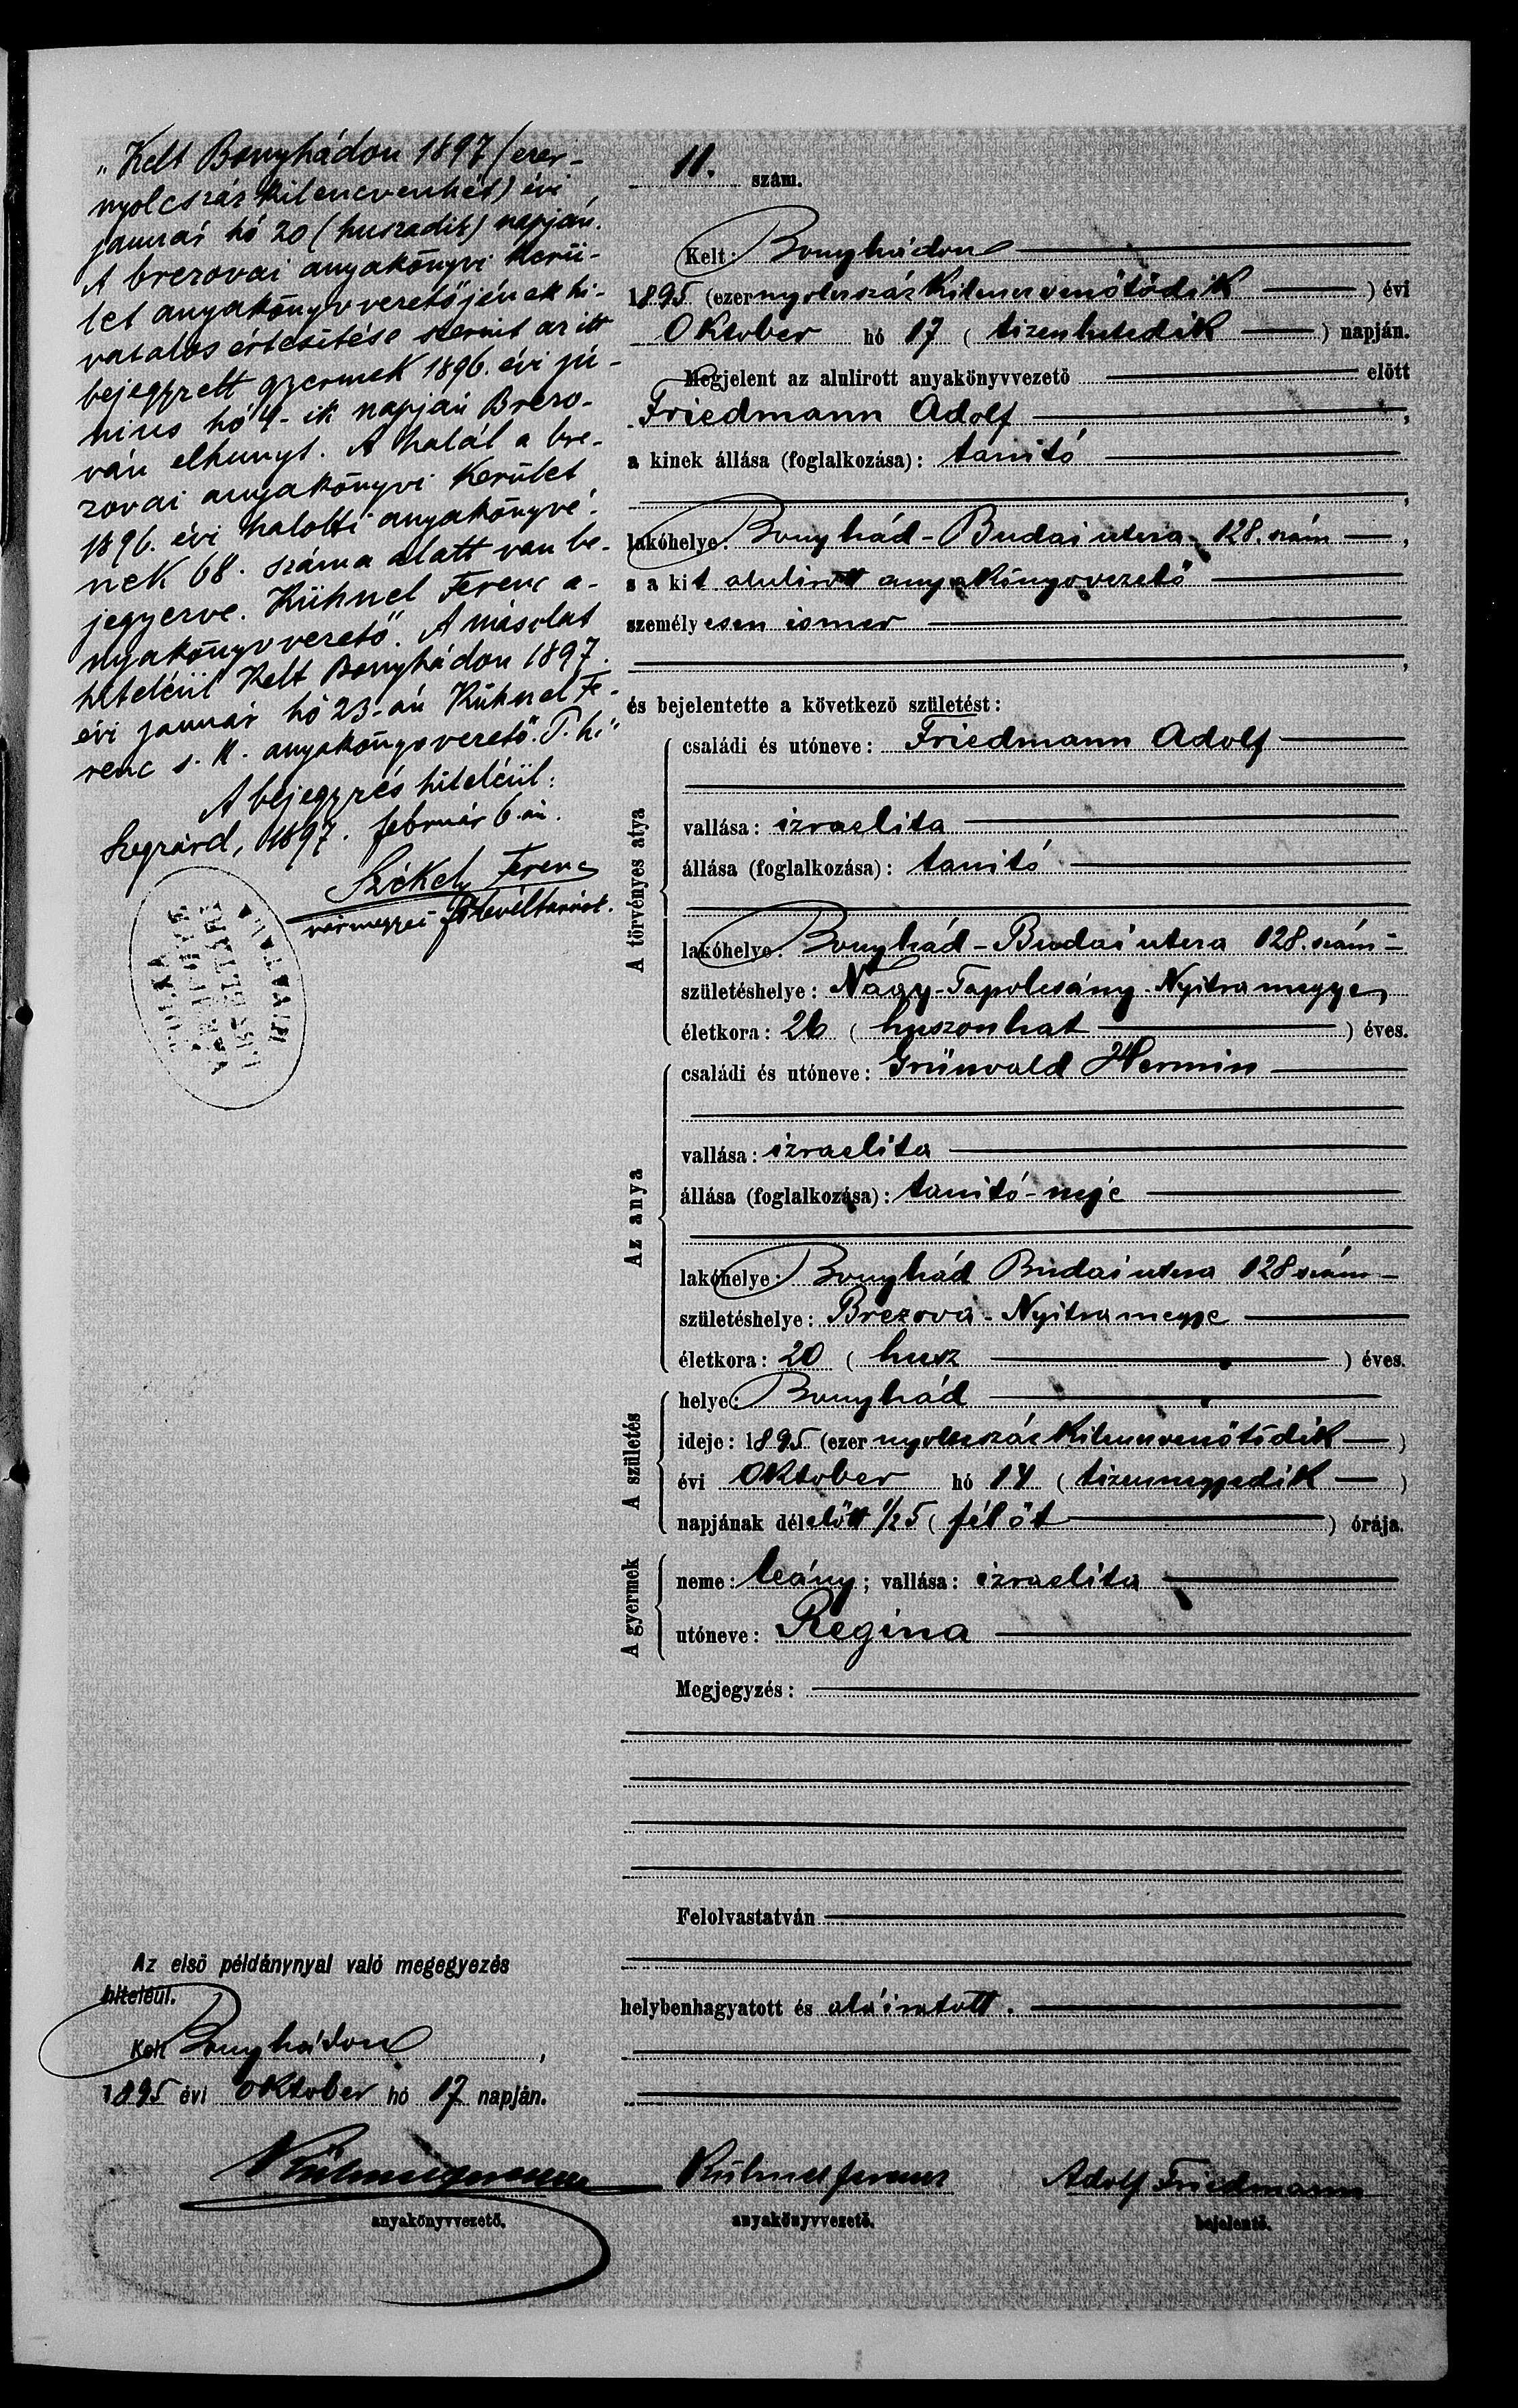 „Kelt Bonyhádon 1897 (ezer-
nyolcszáz kilencvenhét) évi
január hó 20 (huszadik) napján.
A brezovai anyakönyvi kerü-
let anyakönyvvezetőjének hi-
vatalos értesítése szerint az itt
bejegyzett gyermek 1896. évi jú-
nius hó 4-ik napján Brezo-
ván elhunyt. A halál a bre-
zovai anyakönyvi kerület
1896. évi halotti anyakönyvé-
nek 68. száma alatt van be-
jegyezve. Kühnel Ferenc a-
nyakönyvvezető." A másolat
hiteléül Kelt Bonyhádon 1897.
évi január hó 23-án Kühnel Fe-
renc s. k. anyakönyvvezető. P. h."
A bejegyzés hiteléül:
Szegzárd, 1897. február 6-án.
Székely Ferenc
vármegyei főlevéltárnok.
TOLNA
VÁRMEGYE
LEVÉLTÁRI
HIVATALA
11. szám.
Kelt: Bonyhádon
1895 (ezernyolcszáz kilencvenötödik) évi
Oktober hó 17 (tizenhetedik) napján.
Megjelent az alulirott anyakönyvvezető előtt
Friedmann Adolf,
a kinek állása (foglalkozása): tanító
,
lakóhelye: Bonyhád-Budai utca 128. szám,
s a kit alulirott anyakönyvvezető
személyesen ismer
,
és bejelentette a következő születést:
A törvényes atya
családi és utóneve: Friedmann Adolf
vallása: izraelita
állása (foglalkozása): tanitó
lakóhelye: Bonyhád-Budai utca 128. szám
születéshelye: Nagy-Tapolcsány-Nyitramegye
életkora: 26 (huszonhat) éves.
Az anya
családi és utóneve: Grünvald Hermin
vallása: izraelita
állása (foglalkozása): tanitó-neje
lakóhelye: Bonyhád Budai utca 128 szám
születéshelye: Brezova-Nyitramegye
életkora: 20 (husz) éves.
A születés
helye: Bonyhád
ideje: 1895 (ezernyolcszáz kilencvenötödik)
évi Oktober hó 14 (tizennegyedik)
napjának délelőtt 1/2 5 (fél öt) órája.
A gyermek
neme: leány; vallása: izraelita
utóneve: Regina
Megjegyzés:
Felolvastatván
helybenhagyatott és aláiratott.
Az első példánynyal való megegyezés
hiteléül.
Kelt Bonyhádon,
1895 évi oktober hó 17 napján.
Kühnel Ferenc
anyakönyvvezető.
Kühnel Ferenc
anyakönyvvezető.
Adolf Friedmann
bejelentő.